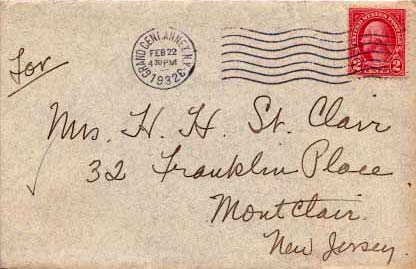 GRAND CENT. ANNEX, N.Y.
FEB 22
4 30 PM
1932
UNITED STATES POSTAGE
2 CENTS 2
For
Mrs. H. H. St. Clair
32 Franklin Place
Montclair.
New Jersey.